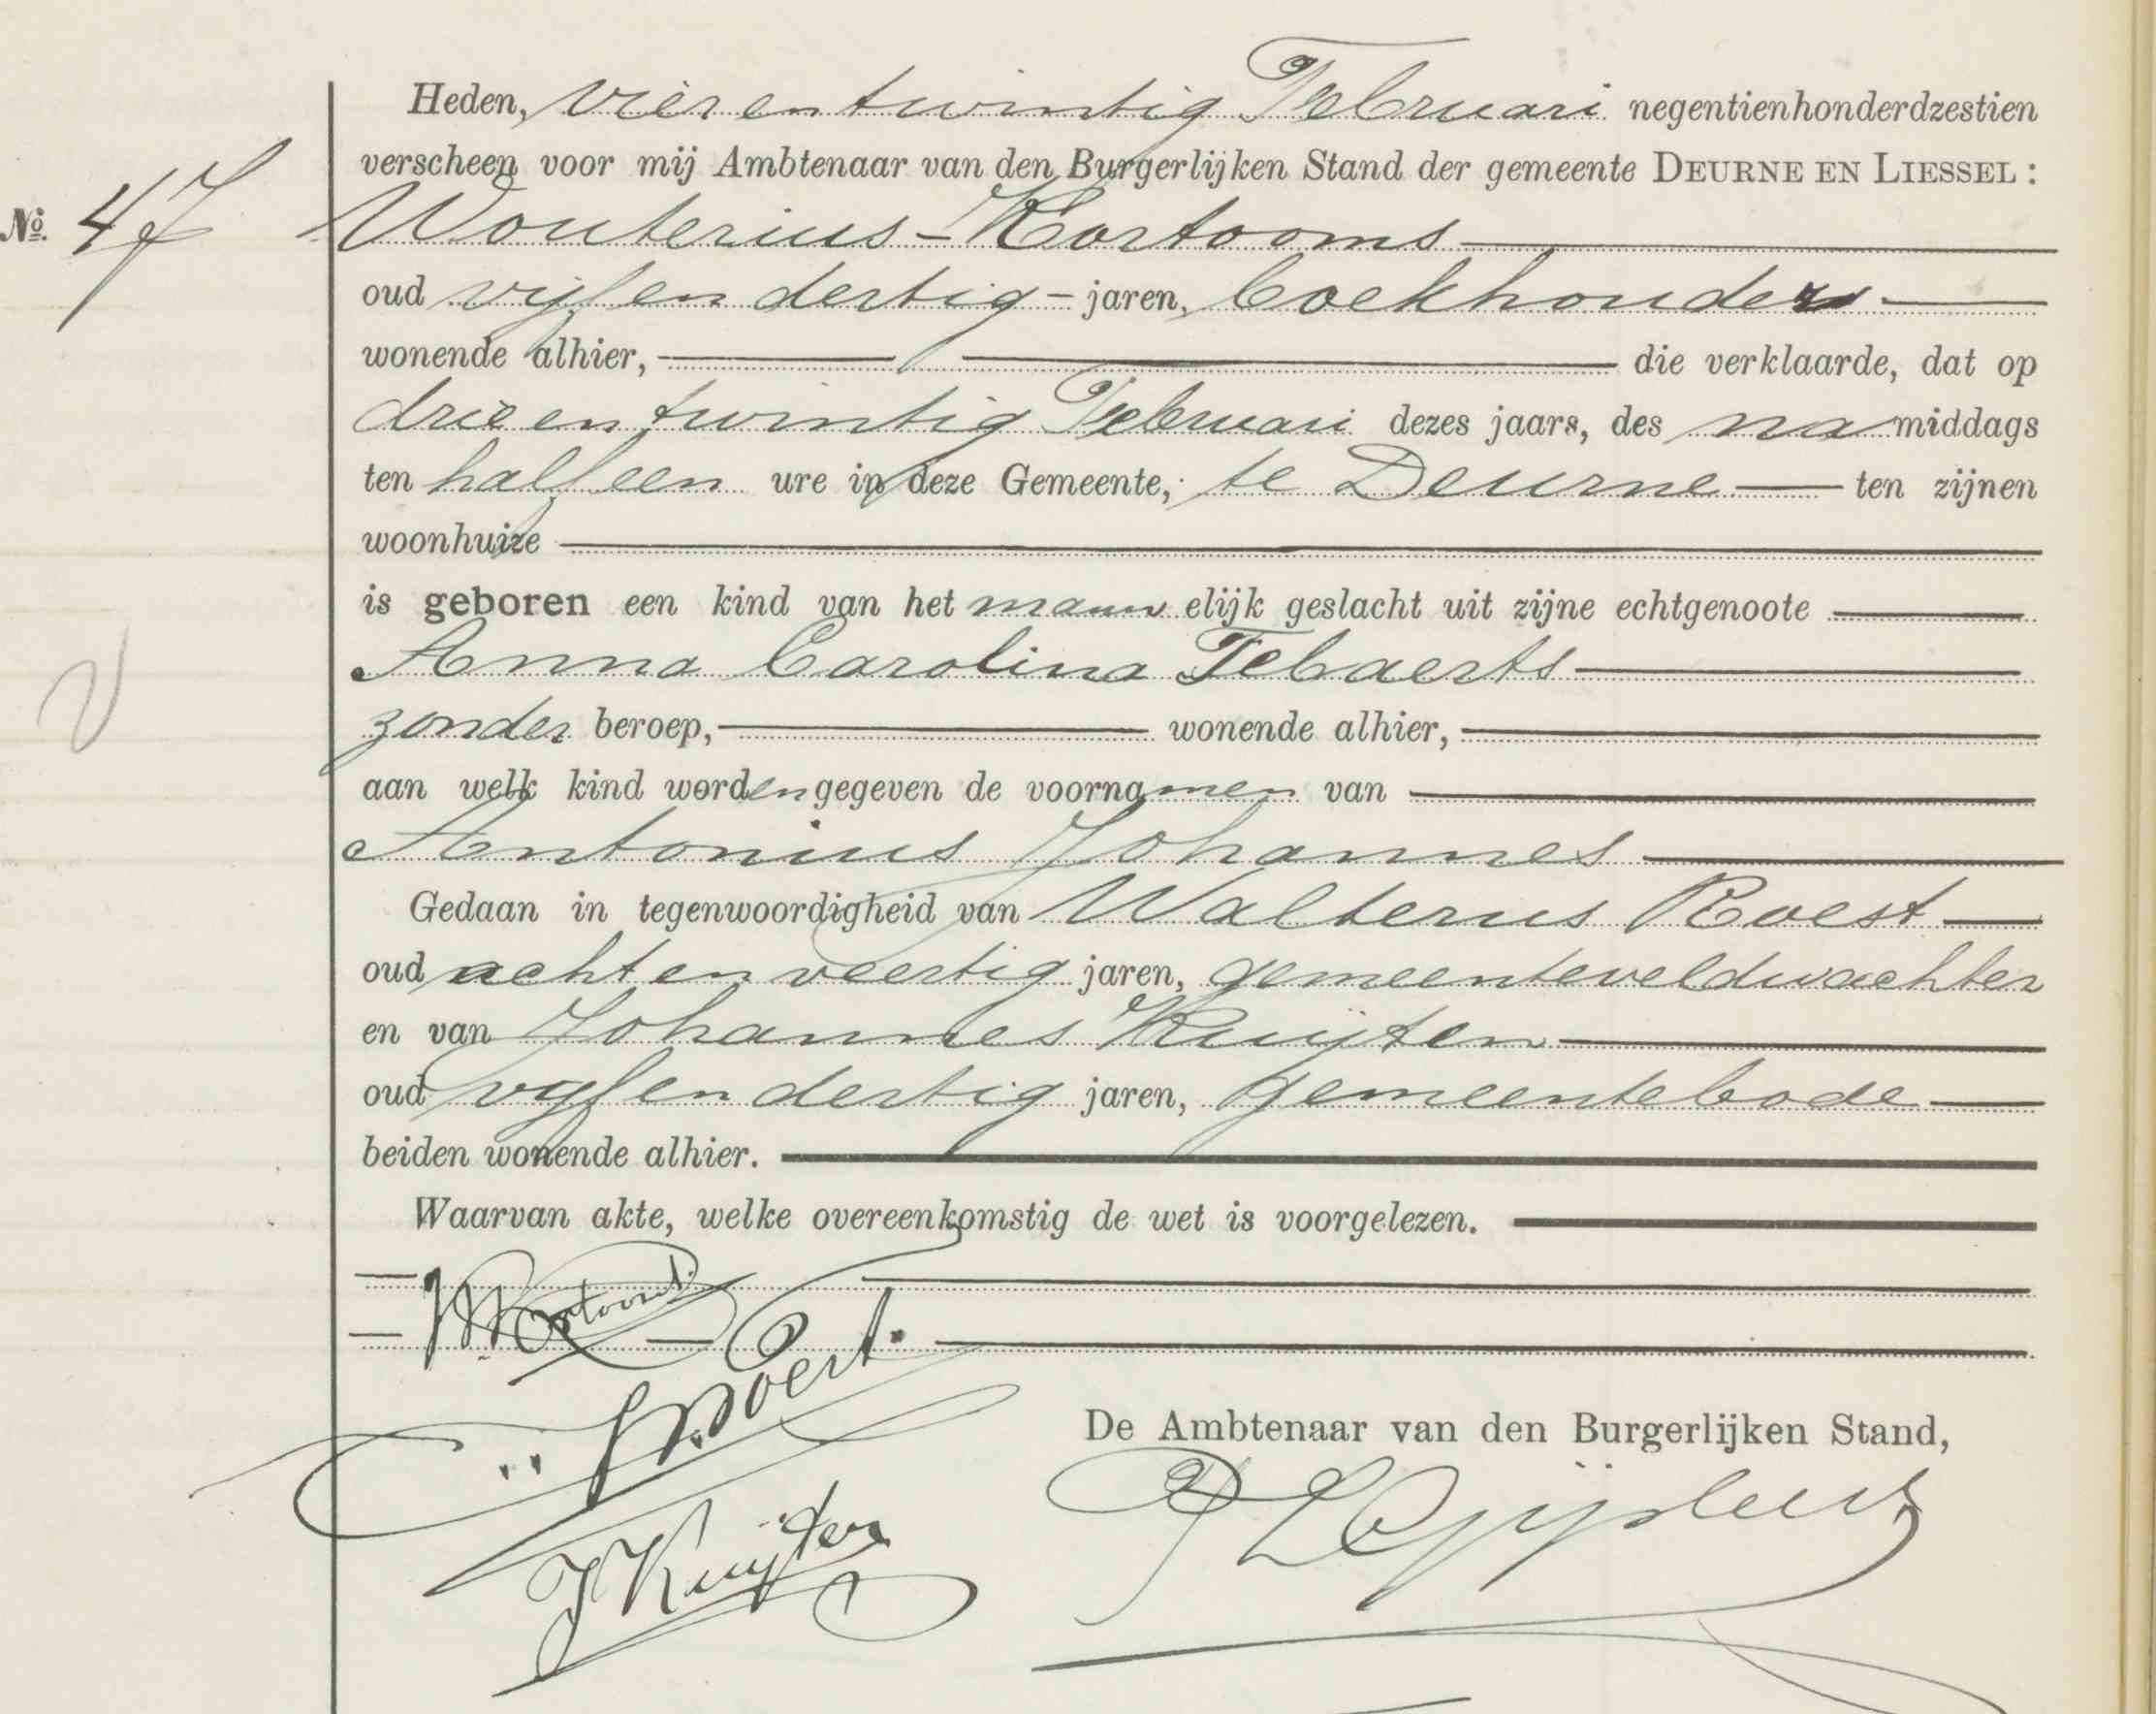 Heden, vier en twintig Februari negentienhonderdzestien
verscheen voor mij Ambtenaar van den Burgerlijken Stand der gemeente DEURNE EN LIESSEL :
No. 47
Wouterius - Kortooms
oud vijf en dertig - jaren, boekhouder
wonende alhier, die verklaarde, dat op
drie en twintig Februari dezes jaars, des na middags
ten half een ure in deze Gemeente, te Deurne ten zijnen
woonhuize
is geboren een kind van het mann elijk geslacht uit zijne echtgenoote
Anna Carolina Tebaerts
zonder beroep, wonende alhier,
aan welk kind worden gegeven de voornamen van
Antonius Johannes
Gedaan in tegenwoordigheid van Walterus Roest
oud acht en veertig jaren, gemeenteveldwachter
en van Johannes Kuijten
oud vijf en dertig jaren, gemeentebode
beiden wonende alhier.
Waarvan akte, welke overeenkomstig de wet is voorgelezen.
W Kortooms.
W Roest.
De Ambtenaar van den Burgerlijken Stand,
J Kuijten